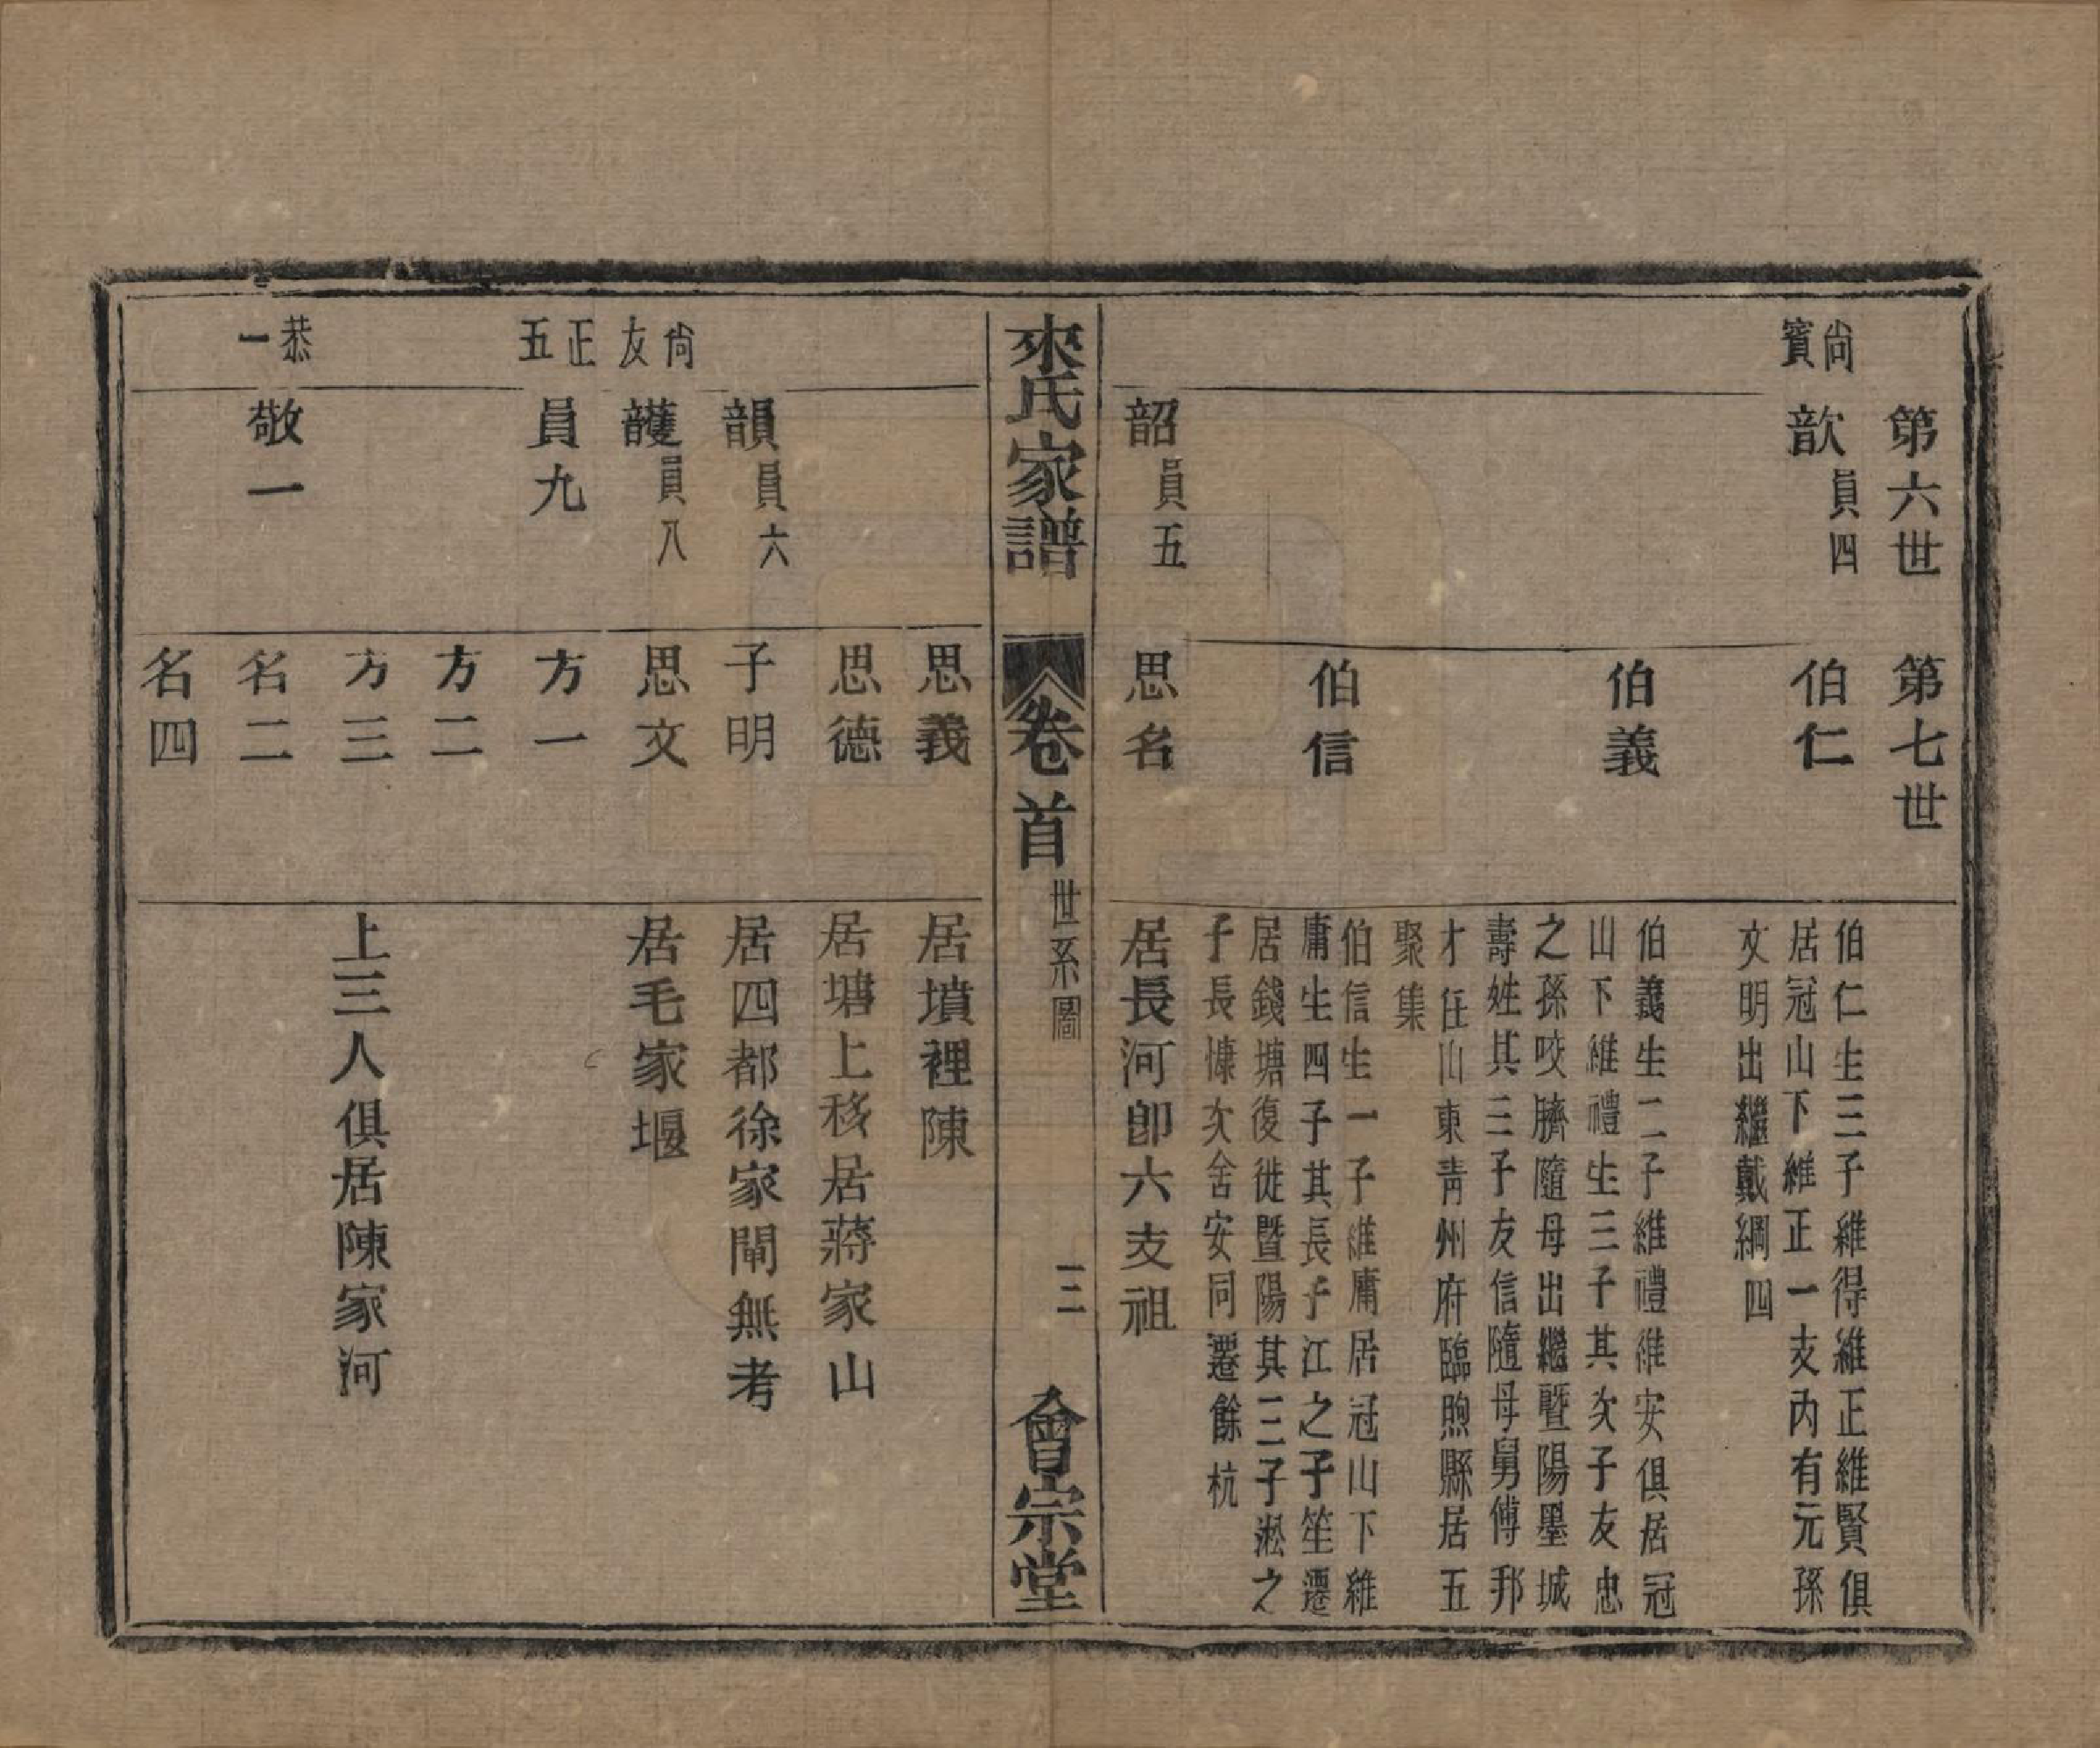 第六世
第七世
尙賓
歆員四
伯仁
伯仁生三子維得維正維賢俱
居冠山下維正一支內有元孫
文明出繼戴綱四
伯義
伯義生二子維禮維安俱居冠
山下維禮生三子其次子友忠
之孫咬臍隨母出繼暨陽墨城
壽姓其三子友信隨母舅傅邦
才任山東靑州府臨煦縣居五
聚集
伯信
伯信生一子維庸居冠山下維
庸生四子其長子江之子笙遷
居錢塘復徙暨陽其三子淞之
子長慷次舍安同遷餘杭
韶員五
思名
居長河卽六支祖
來氏家譜
卷首
世系圖
三
會宗堂
思義
居墳裡陳
思德
居塘上移居蔣家山
韻員六
子明
居四都徐家閘無考
尙友
頀員八
思文
居毛家堰
正五
員九
方一
方二
方三
上三人俱居陳家河
恭一
敬一
名二
名四